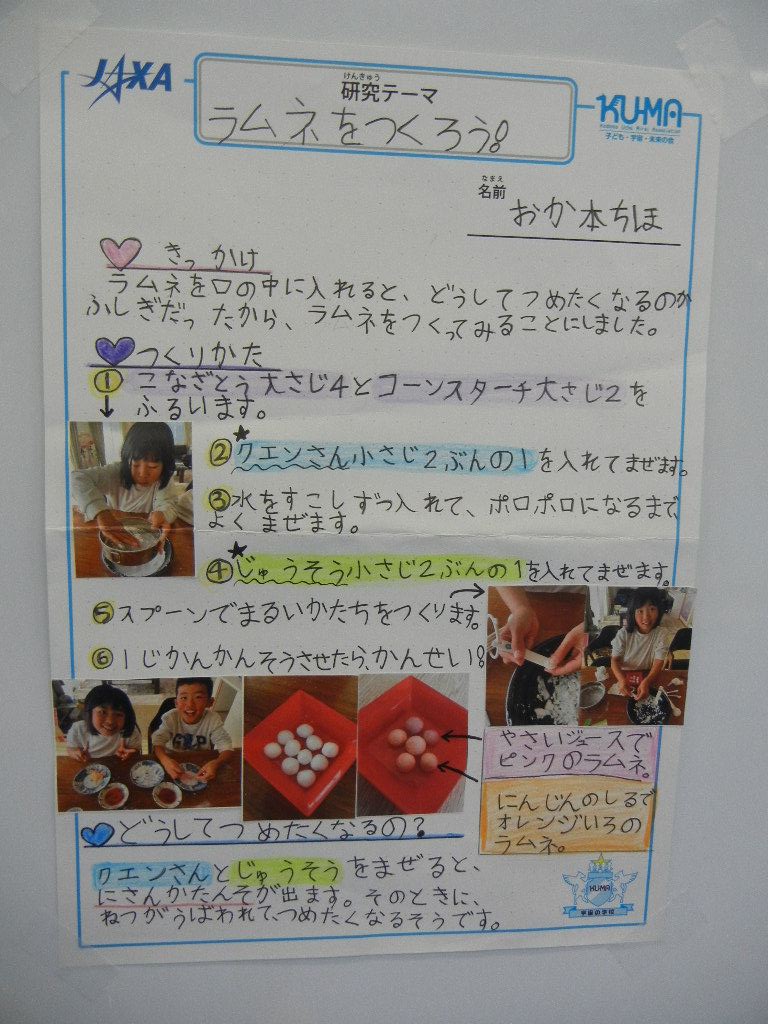 JAXA
けんきゅう
研究テーマ
ラムネをつくろう!
KU-MA
子ども・宇宙・未来の会
なまえ
名前
おか本ちほ
きっかけ
ラムネを口の中に入れると、どうしてつめたくなるのか
ふしぎだったから、ラムネをつくってみることにしました。
つくりかた
①こなざとう大さじ4とコーンスターチ大さじ2を
ふるいます。
②クエンさん小さじ2ぶんの1を入れてまぜます。
③水をすこしずつ入れて、ポロポロになるまで、
よくまぜます。
④じゅうそう小さじ2ぶんの1を入れてまぜます。
⑤スプーンでまるいかたちをつくります。
⑥1じかんかんそうさせたら、かんせい!
やさいジュースで
ピンクのラムネ。
にんじんのしるで
オレンジいろの
ラムネ。
どうしてつめたくなるの?
クエンさんとじゅうそうをまぜると、
にさんかたんそが出ます。そのときに、
ねつがうばわれて、つめたくなるそうです。
KUMA
宇宙の学校